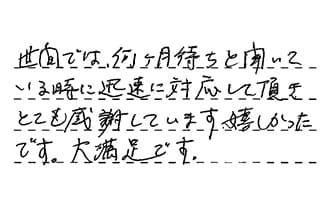 世間では、何ヶ月待ちと聞いて
いる時に迅速に対応して頂き
とても感謝しています。嬉しかった
です。大満足です。